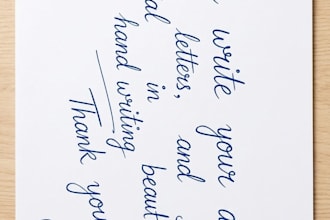 write your a
al letters, and
in beaut
hand writing
Thank you